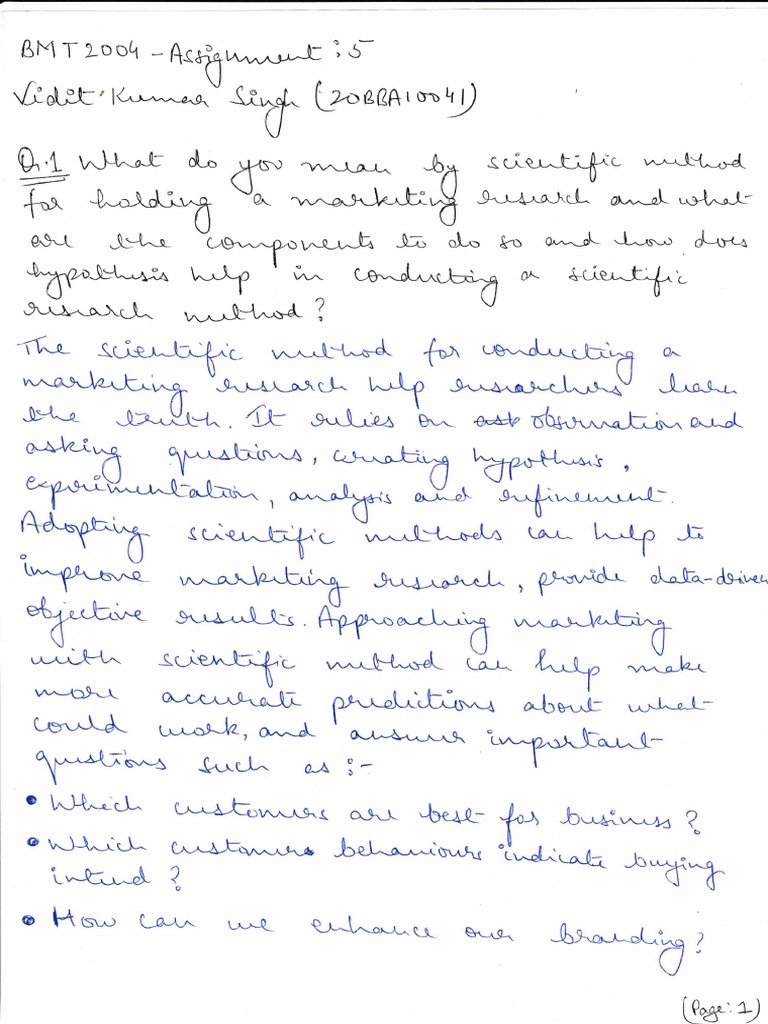 BMT2004 - Assignment : 5
Vidit Kumar Singh (20BBA10041)
Q.1 What do you mean by scientific method
for holding a marketing research and what
are the components to do so and how does
hypothesis help in conducting a scientific
research method?
The scientific method for conducting a
marketing research help researchers learn
the truth. It relies on ask observation and
asking questions, creating hypothesis,
experimentation, analysis and refinement.
Adopting scientific methods can help to
improve marketing research, provide data-driven
objective results. Approaching marketing
with scientific method can help make
more accurate predictions about what
could work, and answer important
questions such as :-
• Which customers are best for business?
• Which customer behaviours indicate buying
intend?
• How can we enhance our branding?
(Page: 1)